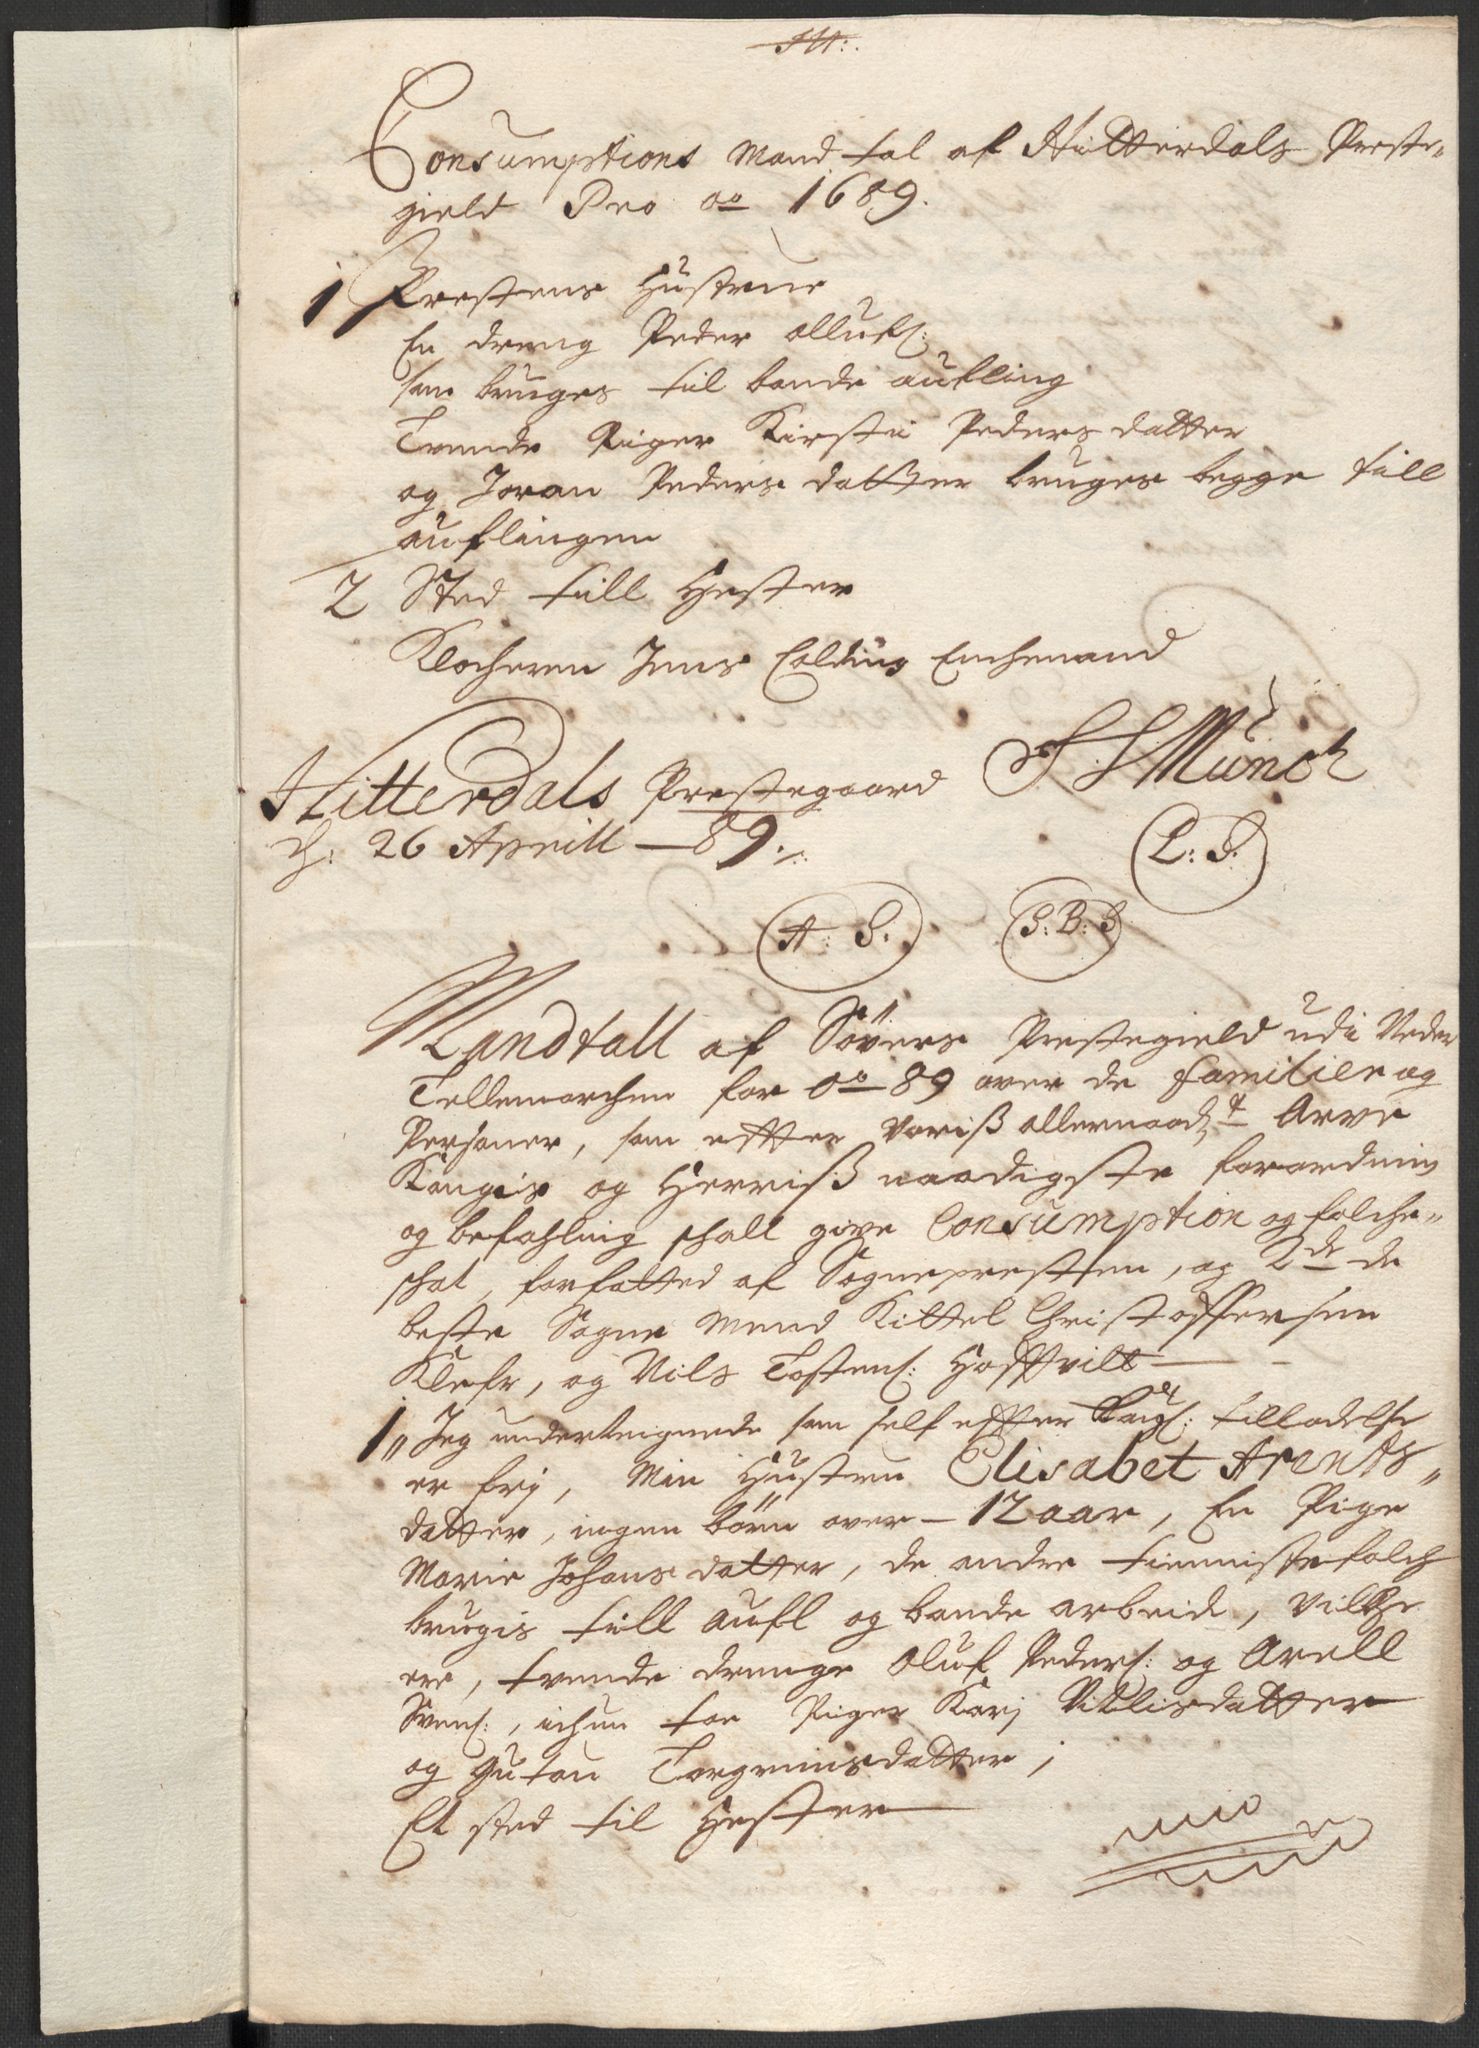 Consumptions Mand tal af Hitterdals Preste-
gield Pro ao 1689.
1 Prestens Hustrue
En dreng Peder Ollufs:
som bruges til bonde aufling
Tvende Piger Kirsti Pedersdatter
og Joran Pedersdatter bruges begge till
auflingen
2 Sted till Hester
Klocheren Jens Colding Enchemand
Hitterdals Prestegaard
S S Münch
d: 26 Aprill - 89.
L: S.
A: S. S: B: S
Mandtall af Søvers Prestegield udi Neder
Tellemarchen for ao 89 over de familier og
Personer, som effter Voriß allernaadigt Arve
Kongis og Herriß naadigste forordning
og befahling schall give Consumption og folche-
schat, forfatted af Sognepresten, og 2de de
beste Sogne Mend Kittel Christoffersen
Klefr, og Nils Tostens:
1 Jeg underteignede som self effter Kongl: tilladelse
er fri, Min Hustru Elisabet Arents-
datter, ingen børn over - 12 aar, En Pige
Marie Johansdatter, de andre tienniste folch
brugis till aufl og bonde arbeid, Vilche
ere, tvende drenge Oluf Peders: og Arell
Svens:, ichun toe Piger Kari Nillisdatter
og Guton Torgrimsdatter;
Et sted til Hester